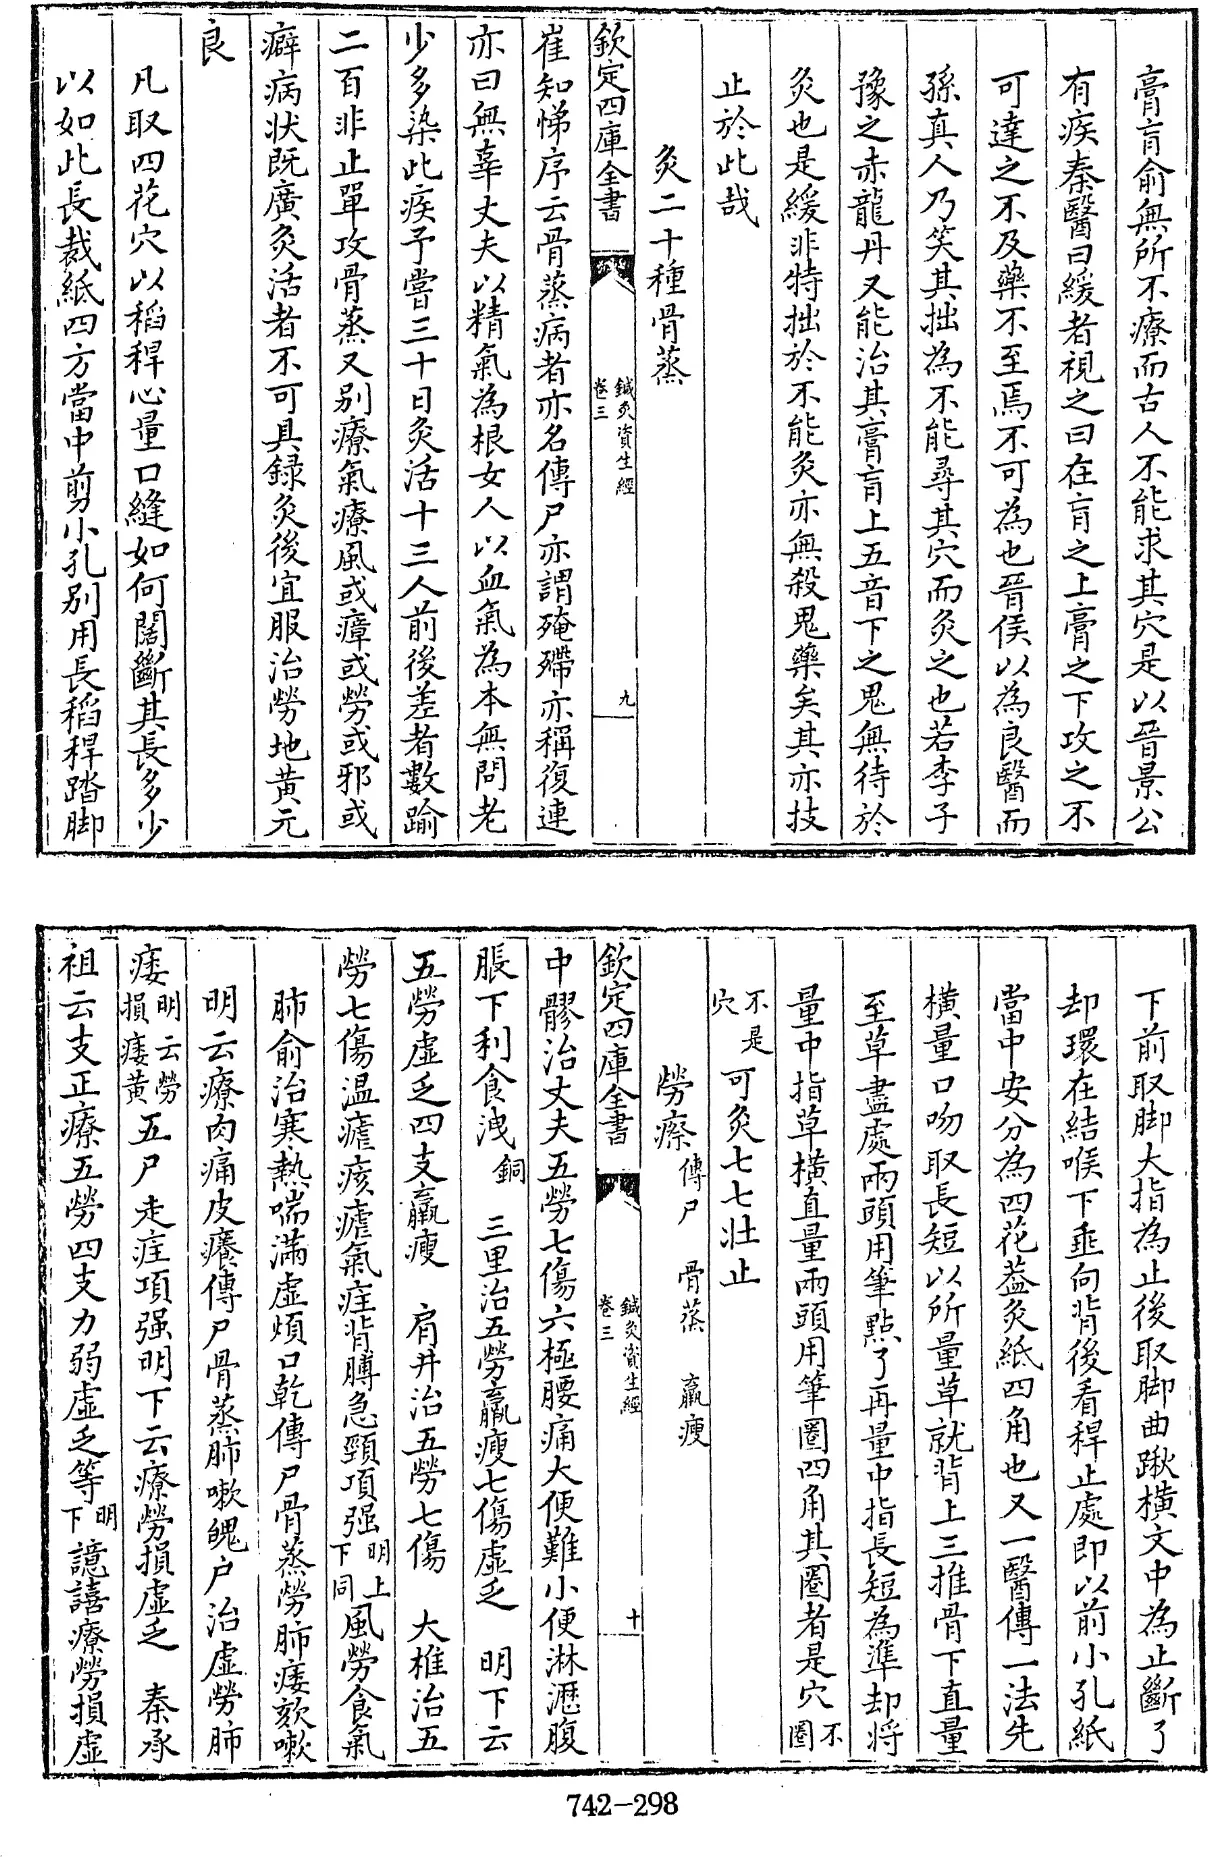 膏肓俞無所不療而古人不能求其穴是以晉景公
有疾秦醫曰緩者視之曰在肓之上膏之下攻之不
可達之不及藥不至焉不可為也晉侯以為良醫而
孫真人乃笑其拙為不能尋其穴而灸之也若李子
豫之赤龍丹又能治其膏肓上五音下之鬼無待於
灸也是緩非特拙於不能灸亦無殺鬼藥矣其亦技
止於此哉
灸二十種骨蒸
欽定四庫全書
鍼灸資生經
卷三
九
崔知悌序云骨蒸病者亦名傳尸亦謂殗殢亦稱復連
亦曰無辜丈夫以精氣為根女人以血氣為本無問老
少多染此疾予嘗三十日灸活十三人前後差者數踰
二百非止單攻骨蒸又別療氣療風或瘴或勞或邪或
癖病狀既廣灸活者不可具錄灸後宜服治勞地黃元
良
凡取四花穴以稻稈心量口縫如何闊斷其長多少
以如此長裁紙四方當中剪小孔別用長稻稈踏脚
下前取脚大指為止後取脚曲䐐橫文中為止斷了
却環在結喉下垂向背後看稈止處即以前小孔紙
當中安分為四花蓋灸紙四角也又一醫傳一法先
橫量口吻取長短以所量草就背上三椎骨下直量
至草盡處兩頭用筆點了再量中指長短為準却將
量中指草橫直量兩頭用筆圈四角其圈者是穴不圈
不是穴可灸七七壯止
勞瘵傳尸 骨蒸 羸瘦
欽定四庫全書
鍼灸資生經
卷三
十
中髎治丈夫五勞七傷六極腰痛大便難小便淋瀝腹
脹下利食洩銅 三里治五勞羸瘦七傷虛乏 明下云
五勞虛乏四支羸瘦 肩井治五勞七傷 大椎治五
勞七傷温瘧痎瘧氣疰背膊急頸項强明上下同風勞食氣
肺俞治寒熱喘滿虛煩口乾傳尸骨蒸勞肺痿欬嗽
明云療肉痛皮癢傳尸骨蒸肺嗽魄户治虛勞肺
痿明云勞損痿黃五尸走疰項强明下云療勞損虛乏 秦承
祖云支正療五勞四支力弱虛乏等明下譩譆療勞損虛
742-298